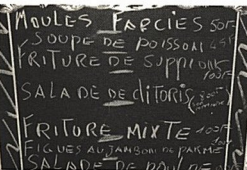 MOULES FARCIES 50F
SOUPE DE POISSON 45F
FRITURE DE SUPPIONS
100F
SALADE DE CLITORIS
FRITURE MIXTE 100F
FIGUES AU JAMBON DE PARME
SALADE DE POULPE